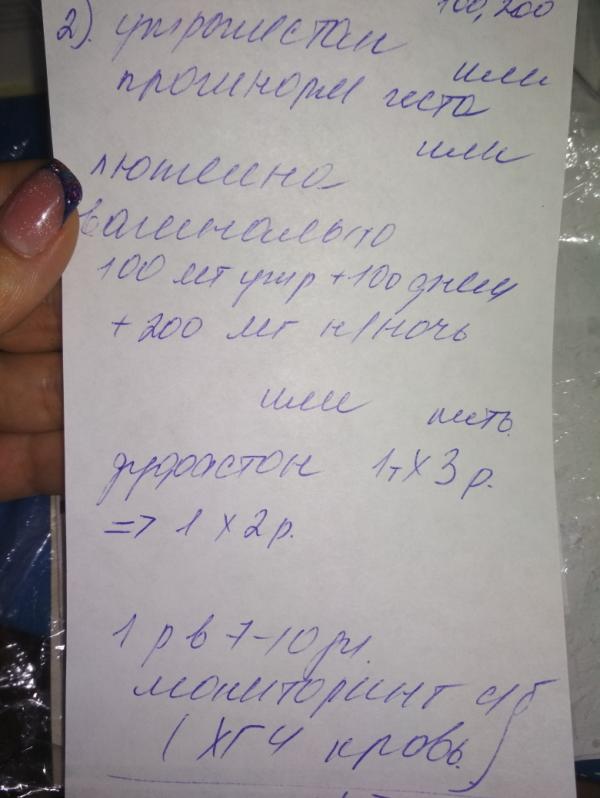 100, 200
2). утрожестан
или
прогинорм геста
или
лютеина
вагинально
100 мг утр + 100 днем
+ 200 мг н/ночь
или пить.
дуфастон 1т х 3 р.
=> 1 х 2 р.
1 р в 7-10 дн.
мониторинг
( ХГЧ кровь. )